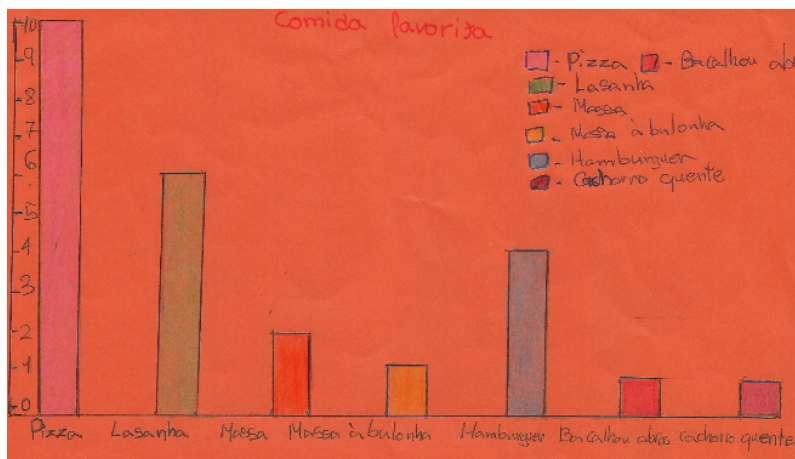 Comida favorita
10
9
8
7
6
5
4
3
2
1
0
- Pizza - Bacalhou abr
- Lasanha
- Massa
- Massa à bulonha
- Hamburguer
- Cachorro quente
Pizza Lasanha Massa Massa à bulonha Hamburguer Bacalhou abras cachorro quente